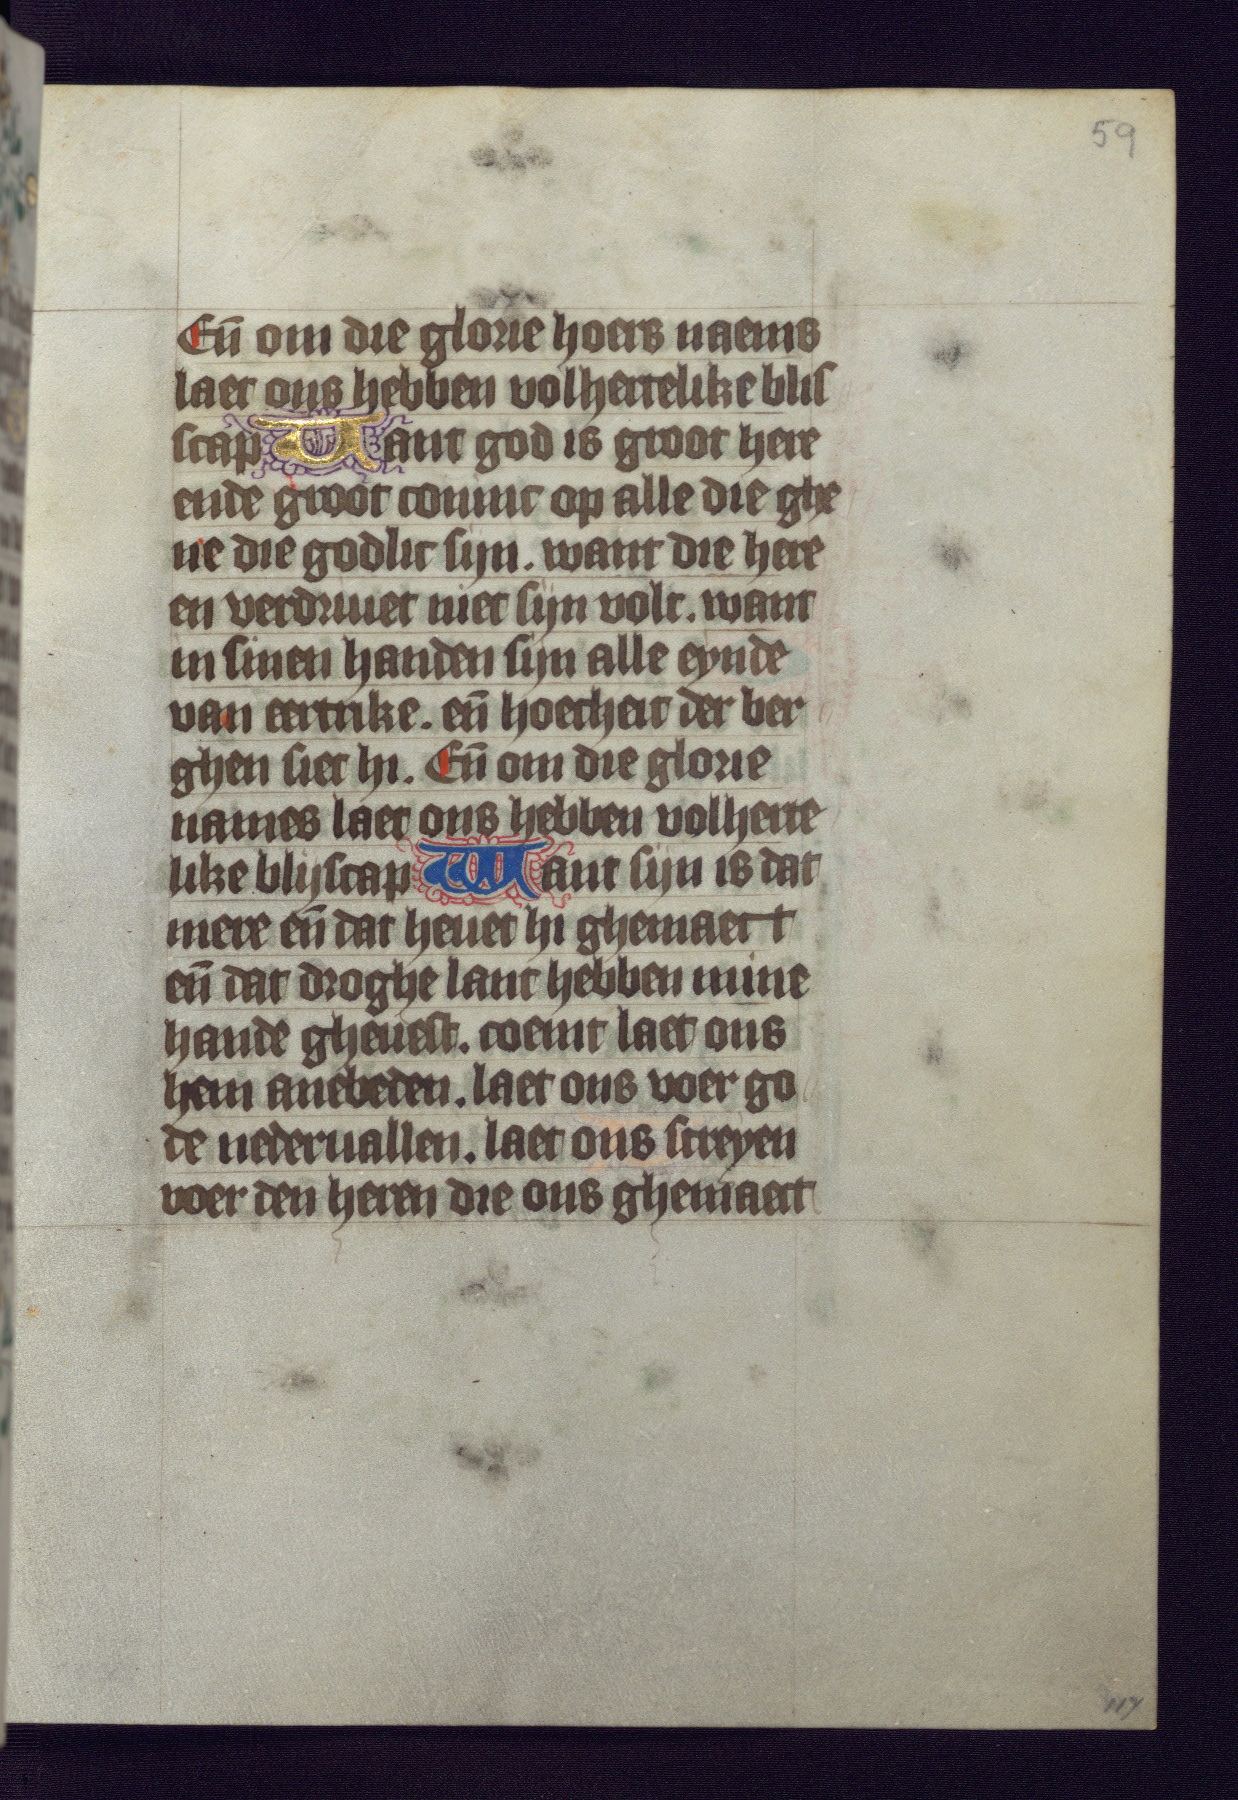 59
Eñ om die glorie hoers naems
laet ons hebben volhertelike blis
scap Want god is groot here
ende groot coninc op alle die ghe
ne die godlic sijn. want die here
en verdriuet niet sijn volc. want
in sinen handen sijn alle eynde
van eertrike. eñ hoecheit der ber
ghen siet hi. Eñ om die glorie
names laet ons hebben volherte
like blijscap Want sijn is dat
mere eñ dat heuet hi ghemaect
eñ dat droghe lant hebben mine
hande gheuest. coemt laet ons
hem anebeden. laet ons voer go
de nederuallen. laet ons screyen
voer den heren die ons ghemaect
117